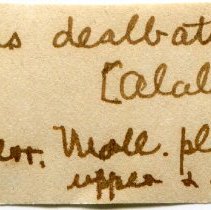 s dealbat
[Alal
or. Moll. pl
upper &